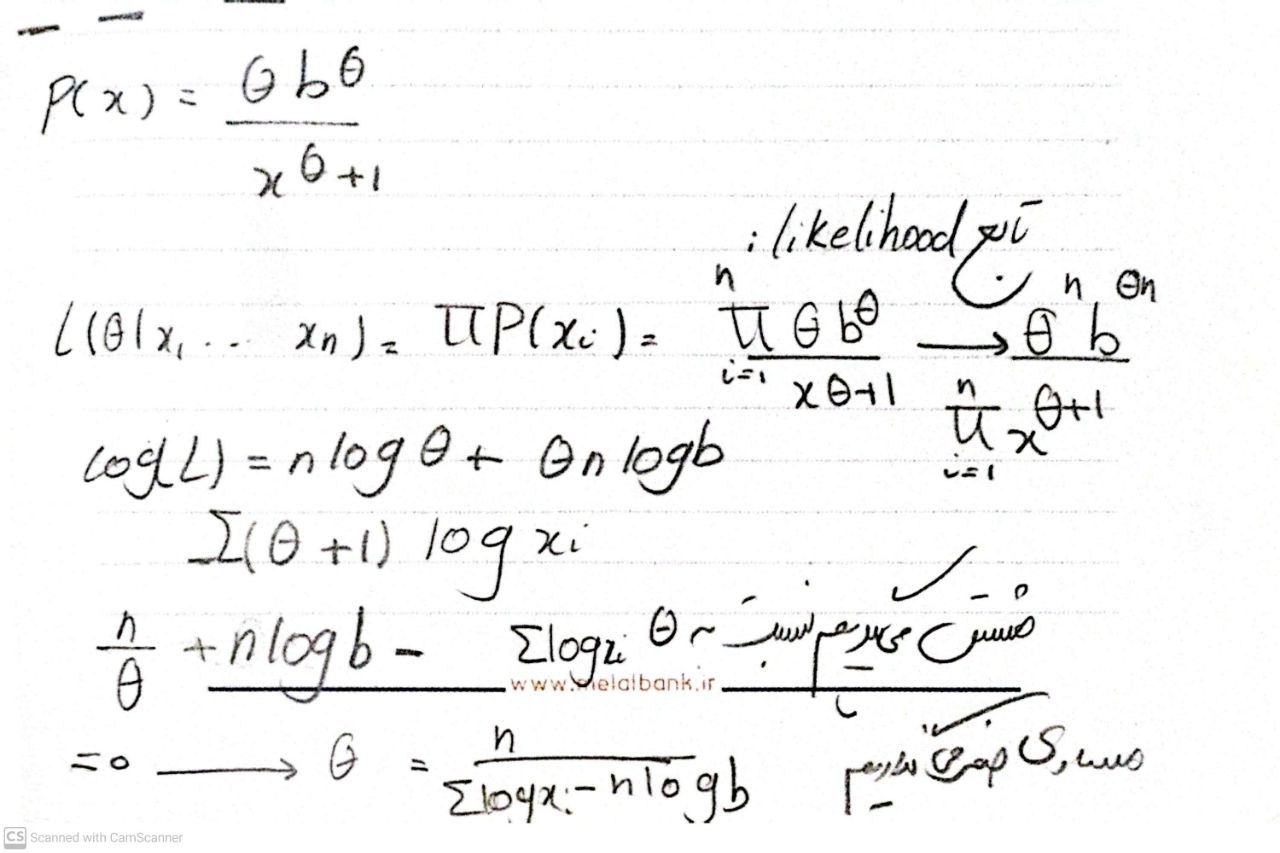 P(x) = θ b^θ / x^θ+1
تابع likelihood :
L(θ|x₁ ... xₙ) = ∏ P(xᵢ) = ∏ⁿᵢ₌₁ θ b^θ / x^θ+1 → θⁿ b^θn / ∏ⁿᵢ₌₁ x^θ+1
log(L) = n log θ + θn log b
Σ(θ+1) log xᵢ
n/θ + n log b − Σ log xᵢ مشتق می گیریم نسبت به θ
www.melalbank.ir
= 0 → θ = n / Σ log xᵢ − n log b مساوی صفر می گذاریم
CS Scanned with CamScanner